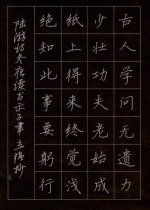 古人学问无遗力
少壮功夫老始成
纸上得来终觉浅
绝知此事要躬行
陆游诗冬夜读书示子聿